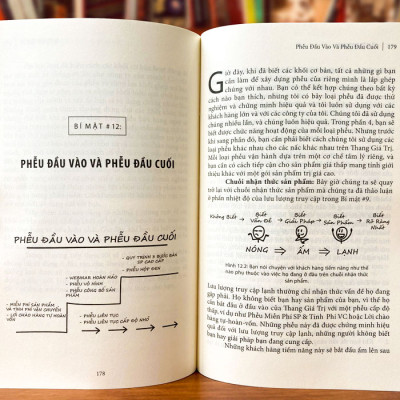 BÍ MẬT #12:
PHỄU ĐẦU VÀO VÀ PHỄU ĐẦU CUỐI
PHỄU ĐẦU VÀO VÀ PHỄU ĐẦU CUỐI
• QUY TRÌNH 2 BƯỚC BÁN
SP CAO CẤP
• PHỄU HỘP ĐEN
• WEBINAR HOÀN HẢO
• PHỄU VÔ HÌNH
• PHỄU CÔNG BỐ SẢN
PHẨM
• MIỄN PHÍ SẢN PHẨM
VÀ TÍNH PHÍ VẬN CHUYỂN
• LỜI CHÀO HÀNG TỰ HOÀN
VỐN
• PHỄU LIÊN TỤC
• PHỄU LIÊN TỤC CẤP ĐỘ NHỎ
178
Phễu Đầu Vào Và Phễu Đầu Cuối | 179
Giờ đây, khi đã biết các khối cơ bản, tất cả những gì bạn
cần làm để xây dựng phễu của riêng mình là lắp ghép
chúng với nhau. Bạn có thể kết hợp chúng theo bất kỳ
cách nào bạn thích, nhưng tôi có bảy loại phễu đã được
thử nghiệm và chứng minh hiệu quả và tôi luôn sử dụng với
các khách hàng lớn và với các công ty của tôi. Chúng tôi đã sử dụng
chúng nhiều lần, và chúng luôn hiệu quả. Trong phần 4, bạn sẽ
biết được chức năng hoạt động của mỗi loại phễu. Nhưng trước
khi sang phần đó, bạn cần phải biết được tại sao chúng ta cần
các loại phễu khác nhau cho các nấc khác nhau trên Thang Giá Trị.
Mỗi loại phễu vận hành dựa trên một cơ chế tâm lý riêng, và
các bước bạn cần phải làm để bán sản phẩm giá thấp mang tính giới
thiệu khác với một gói sản phẩm trị giá cao.
Chuỗi nhận thức sản phẩm: Bây giờ chúng ta sẽ quay
trở lại với chuỗi nhận thức sản phẩm mà chúng ta đã khám phá
khi nói về nhiệt độ của lưu lượng truy cập trong Bí mật #9.
Không Biết
Biết
Vấn Đề
Biết
Giải Pháp
Biết
Sản Phẩm
Biết
Rõ Ràng
Nhất
NÓNG → ẤM → LẠNH
Hình 12.2: Bạn nói chuyện với khách hàng tiềm năng như thế
nào phụ thuộc vào việc họ đang ở đâu trên chuỗi nhận thức
sản phẩm.
Lưu lượng truy cập lạnh thường chỉ nhận thức được vấn đề họ
đang gặp phải. Họ không biết bạn hay sản phẩm của bạn, vì thế họ
cần bắt đầu vào đầu của Thang Giá Trị với một phễu cấp độ
thấp, ví dụ như Phễu Miễn Phí SP & Tính Phí VC hoặc Lời chào
hàng tự-hoàn-vốn. Những phễu này đã được chứng minh hiệu
quả đối với lưu lượng truy cập lạnh, những người không biết
bạn hay giải pháp bạn đang cung cấp.
Những khách hàng tiềm năng này sẽ bắt đầu ấm lên sau